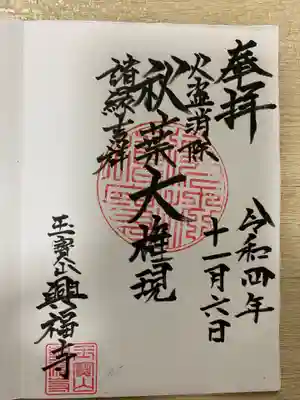 奉拝
令和四年
十一月六日
火盗消除
秋葉大権現
諸縁吉祥
玉寳山興福寺